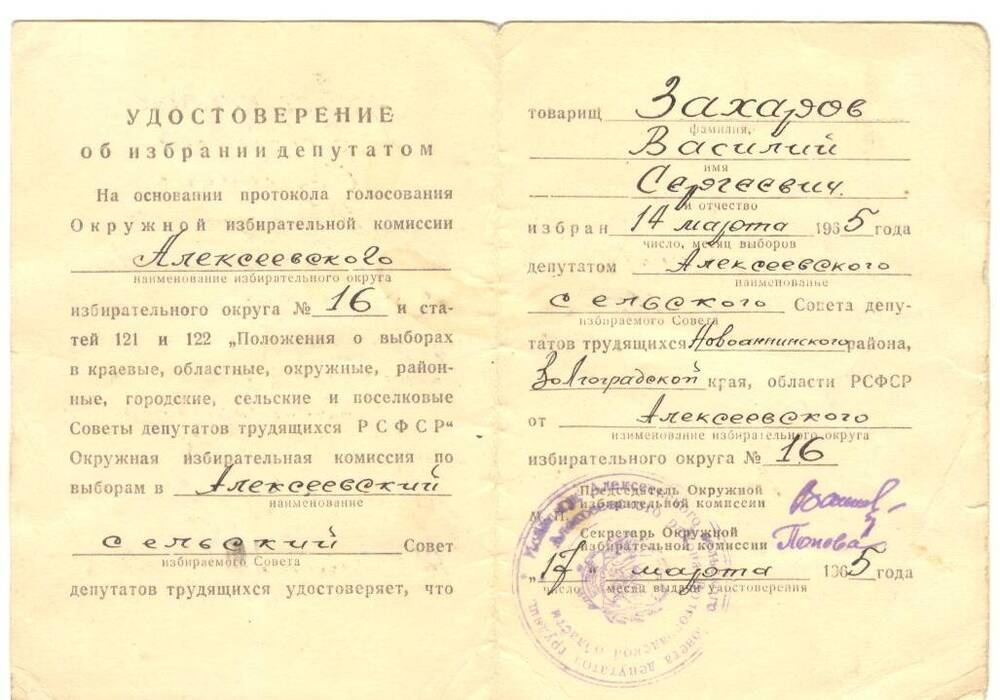 УДОСТОВЕРЕНИЕ
об избрании депутатом
На основании протокола голосования
Окружной избирательной комиссии
Алексеевского
наименование избирательного округа
избирательного округа № 16 и ста-
тей 121 и 122 „Положения о выборах
в краевые, областные, окружные, район-
ные, городские, сельские и поселковые
Советы депутатов трудящихся РСФСР“
Окружная избирательная комиссия по
выборам в Алексеевский
наименование
сельский Совет
избираемого Совета
депутатов трудящихся удостоверяет, что
товарищ Захаров
фамилия,
Василий
имя
Сергеевич.
и отчество
избран 14 марта 1965 года
число, месяц выборов
депутатом Алексеевского
наименование
сельского Совета депу-
избираемого Совета
татов трудящихся Новоаннинского района,
Волгоградской края, области РСФСР
от Алексеевского
наименование избирательного округа
избирательного округа № 16
Председатель Окружной
избирательной комиссии
М. П.
Секретарь Окружной
избирательной комиссии Попова
„17“ марта 1965 года
число месяц выдачи удостоверения